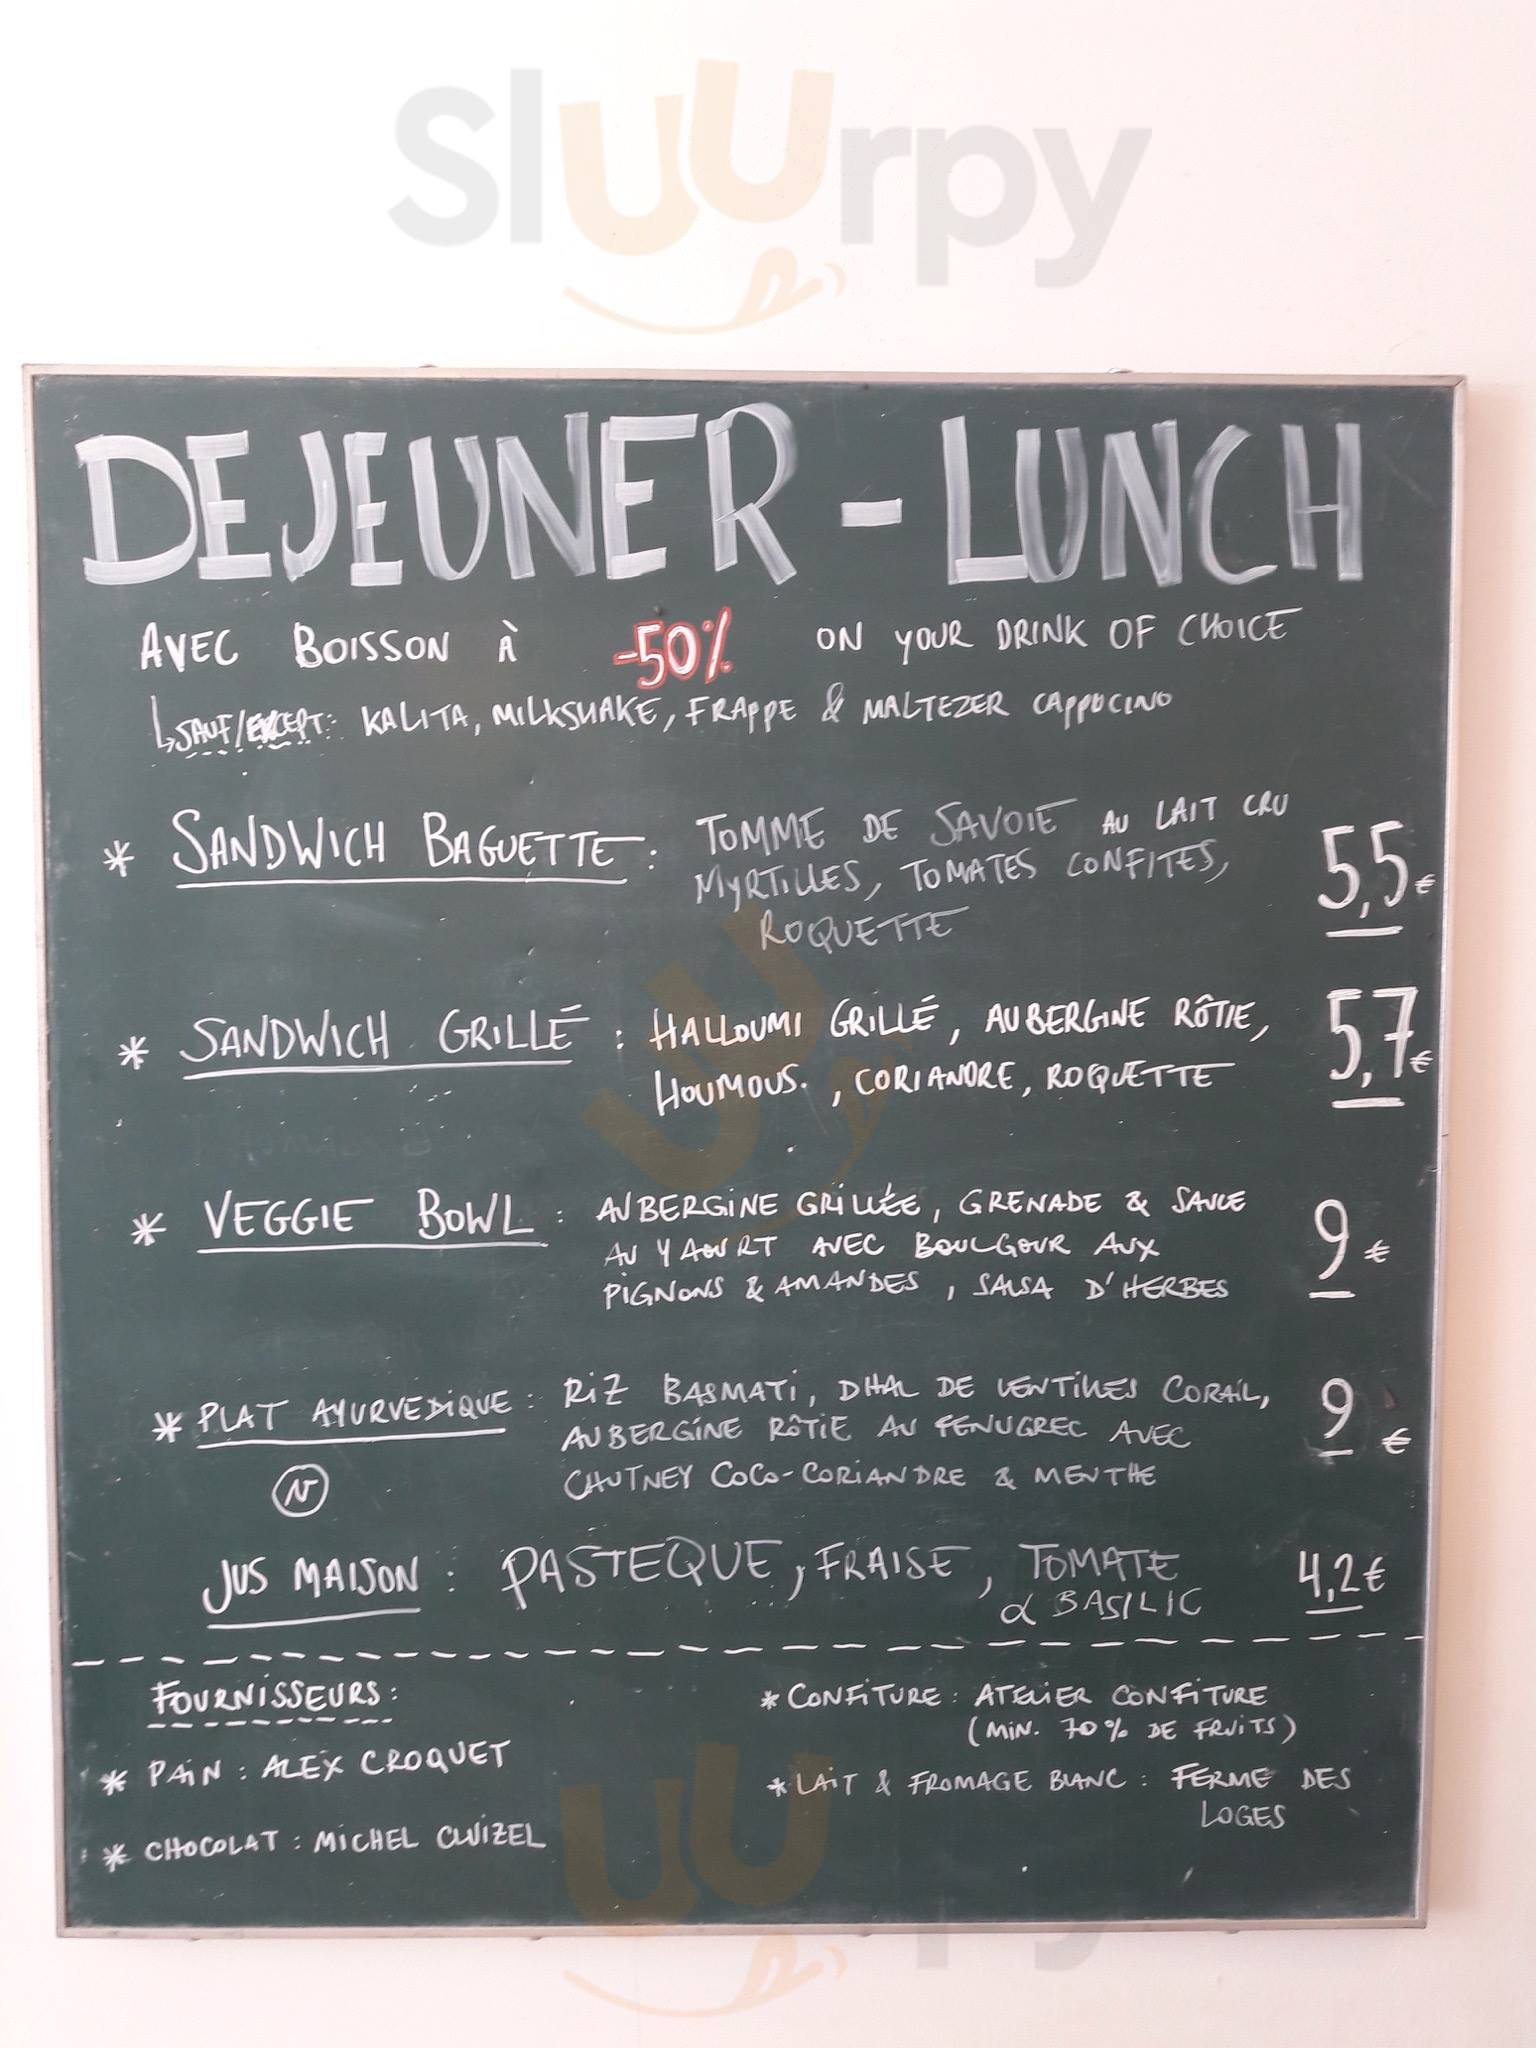 Sluurpy
DEJEUNER - LUNCH
AVEC BOISSON À -50% ON YOUR DRINK OF CHOICE
↳SAUF/EXCEPT: KALITA, MILKSHAKE, FRAPPE & MALTEZER CAPPUCINO
* SANDWICH BAGUETTE : TOMME DE SAVOIE AU LAIT CRU
MYRTILLES, TOMATES CONFITES,
ROQUETTE
5,5€
* SANDWICH GRILLÉ : HALLOUMI GRILLÉ, AUBERGINE RÔTIE,
HOUMOUS. , CORIANDRE, ROQUETTE
5,7€
* VEGGIE BOWL : AUBERGINE GRILLÉE, GRENADE & SAUCE
AU YAOURT AVEC BOULGOUR AUX
PIGNONS & AMANDES, SALSA D'HERBES
9 €
* PLAT AYURVEDIQUE : RIZ BASMATI, DHAL DE LENTILLES CORAIL,
AUBERGINE RÔTIE AU FENUGREC AVEC
CHUTNEY COCO-CORIANDRE & MENTHE
9 €
JUS MAISON : PASTEQUE, FRAISE, TOMATE
& BASILIC
4,2€
FOURNISSEURS :
* PAIN : ALEX CROQUET
* CHOCOLAT : MICHEL CLUIZEL
* CONFITURE : ATELIER CONFITURE
(MIN. 70% DE FRUITS)
* LAIT & FROMAGE BLANC : FERME DES
LOGES